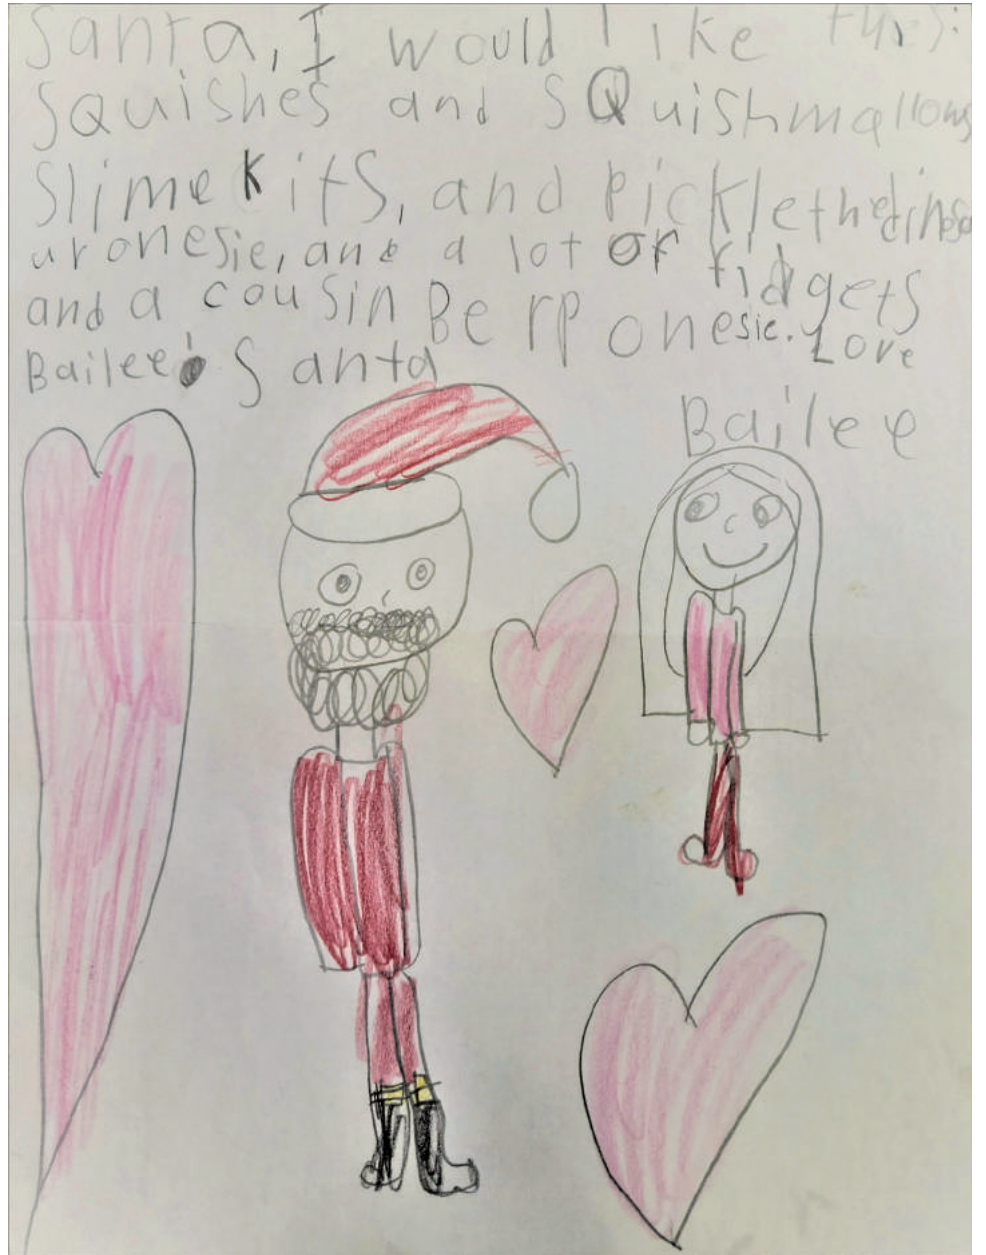 Santa, I would like this:
Squishes and SQuishmallows
Slime kits, and Picklethedinosa
uronesie, and a lot of fidgets
and a cousin Be rp onesie. Love
Bailee! Santa
Bailee